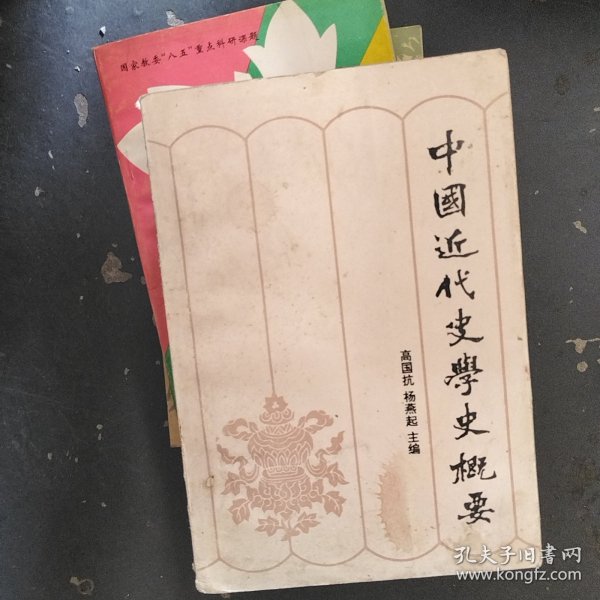 国家教委“八五”重点科研课题
中國近代史學史概要
高国抗 杨燕起 主编
孔夫子旧書网
www.kongfz.com